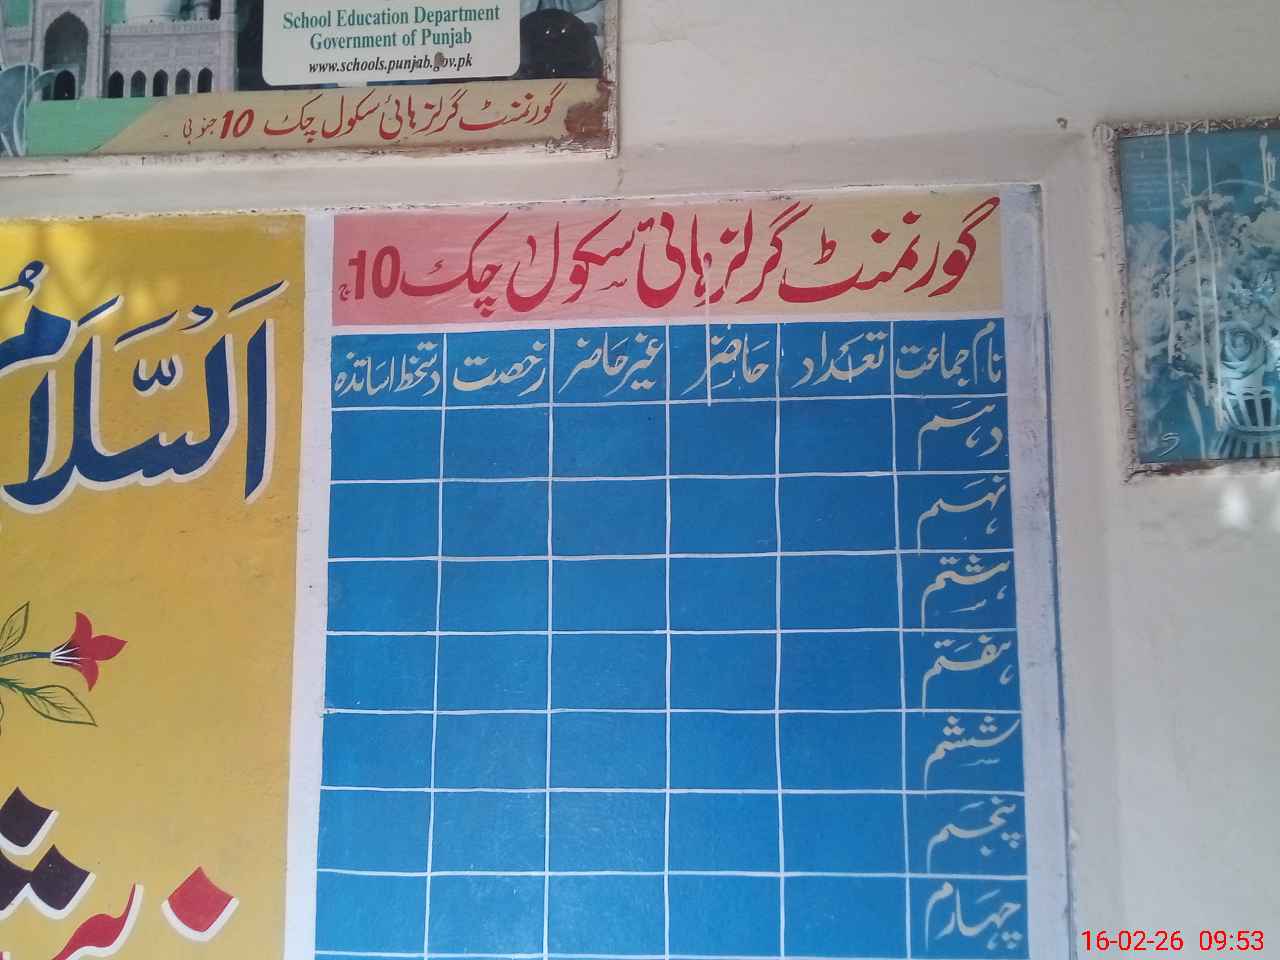 School Education Department
Government of Punjab
www.schools.punjab.gov.pk
گورنمنٹ گرلز ہائی سکول چک 10 جنوبی
گورنمنٹ گرلز ہائی سکول چک 10 ج
نام جماعت تعداد حاضر غیر حاضر رخصت دستخط اساتذہ
دہم
نہم
ہشتم
ہفتم
ششم
پنجم
چہارم
السلام
16-02-26 09:53